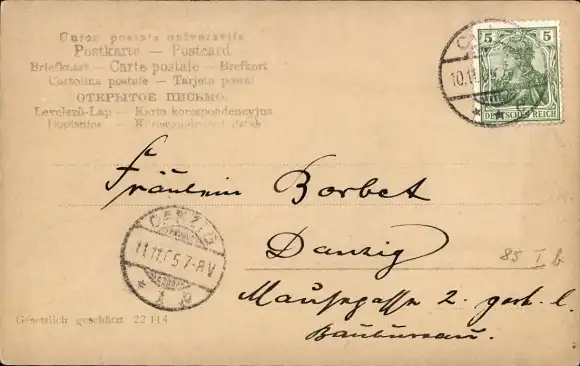 Union postale universelle
Postkarte — Postcard
Briefkaart — Carte postale — Brefkort
Cartolina postale — Tarjeta postal
ОТКРЫТОЕ ПИСЬМО.
Levelezö-Lap — Karta korespondencyjna
Dopisnice — Korespondenční lístek
5 5
DEUTSCHES REICH
10.11.05
Fräulein Borbet
DANZIG
11.11.05 7-8V
* 1 b
Danzig
85 I b
Mausegasse 2. I.
Baubureau.
Gesetzlich geschützt 22114